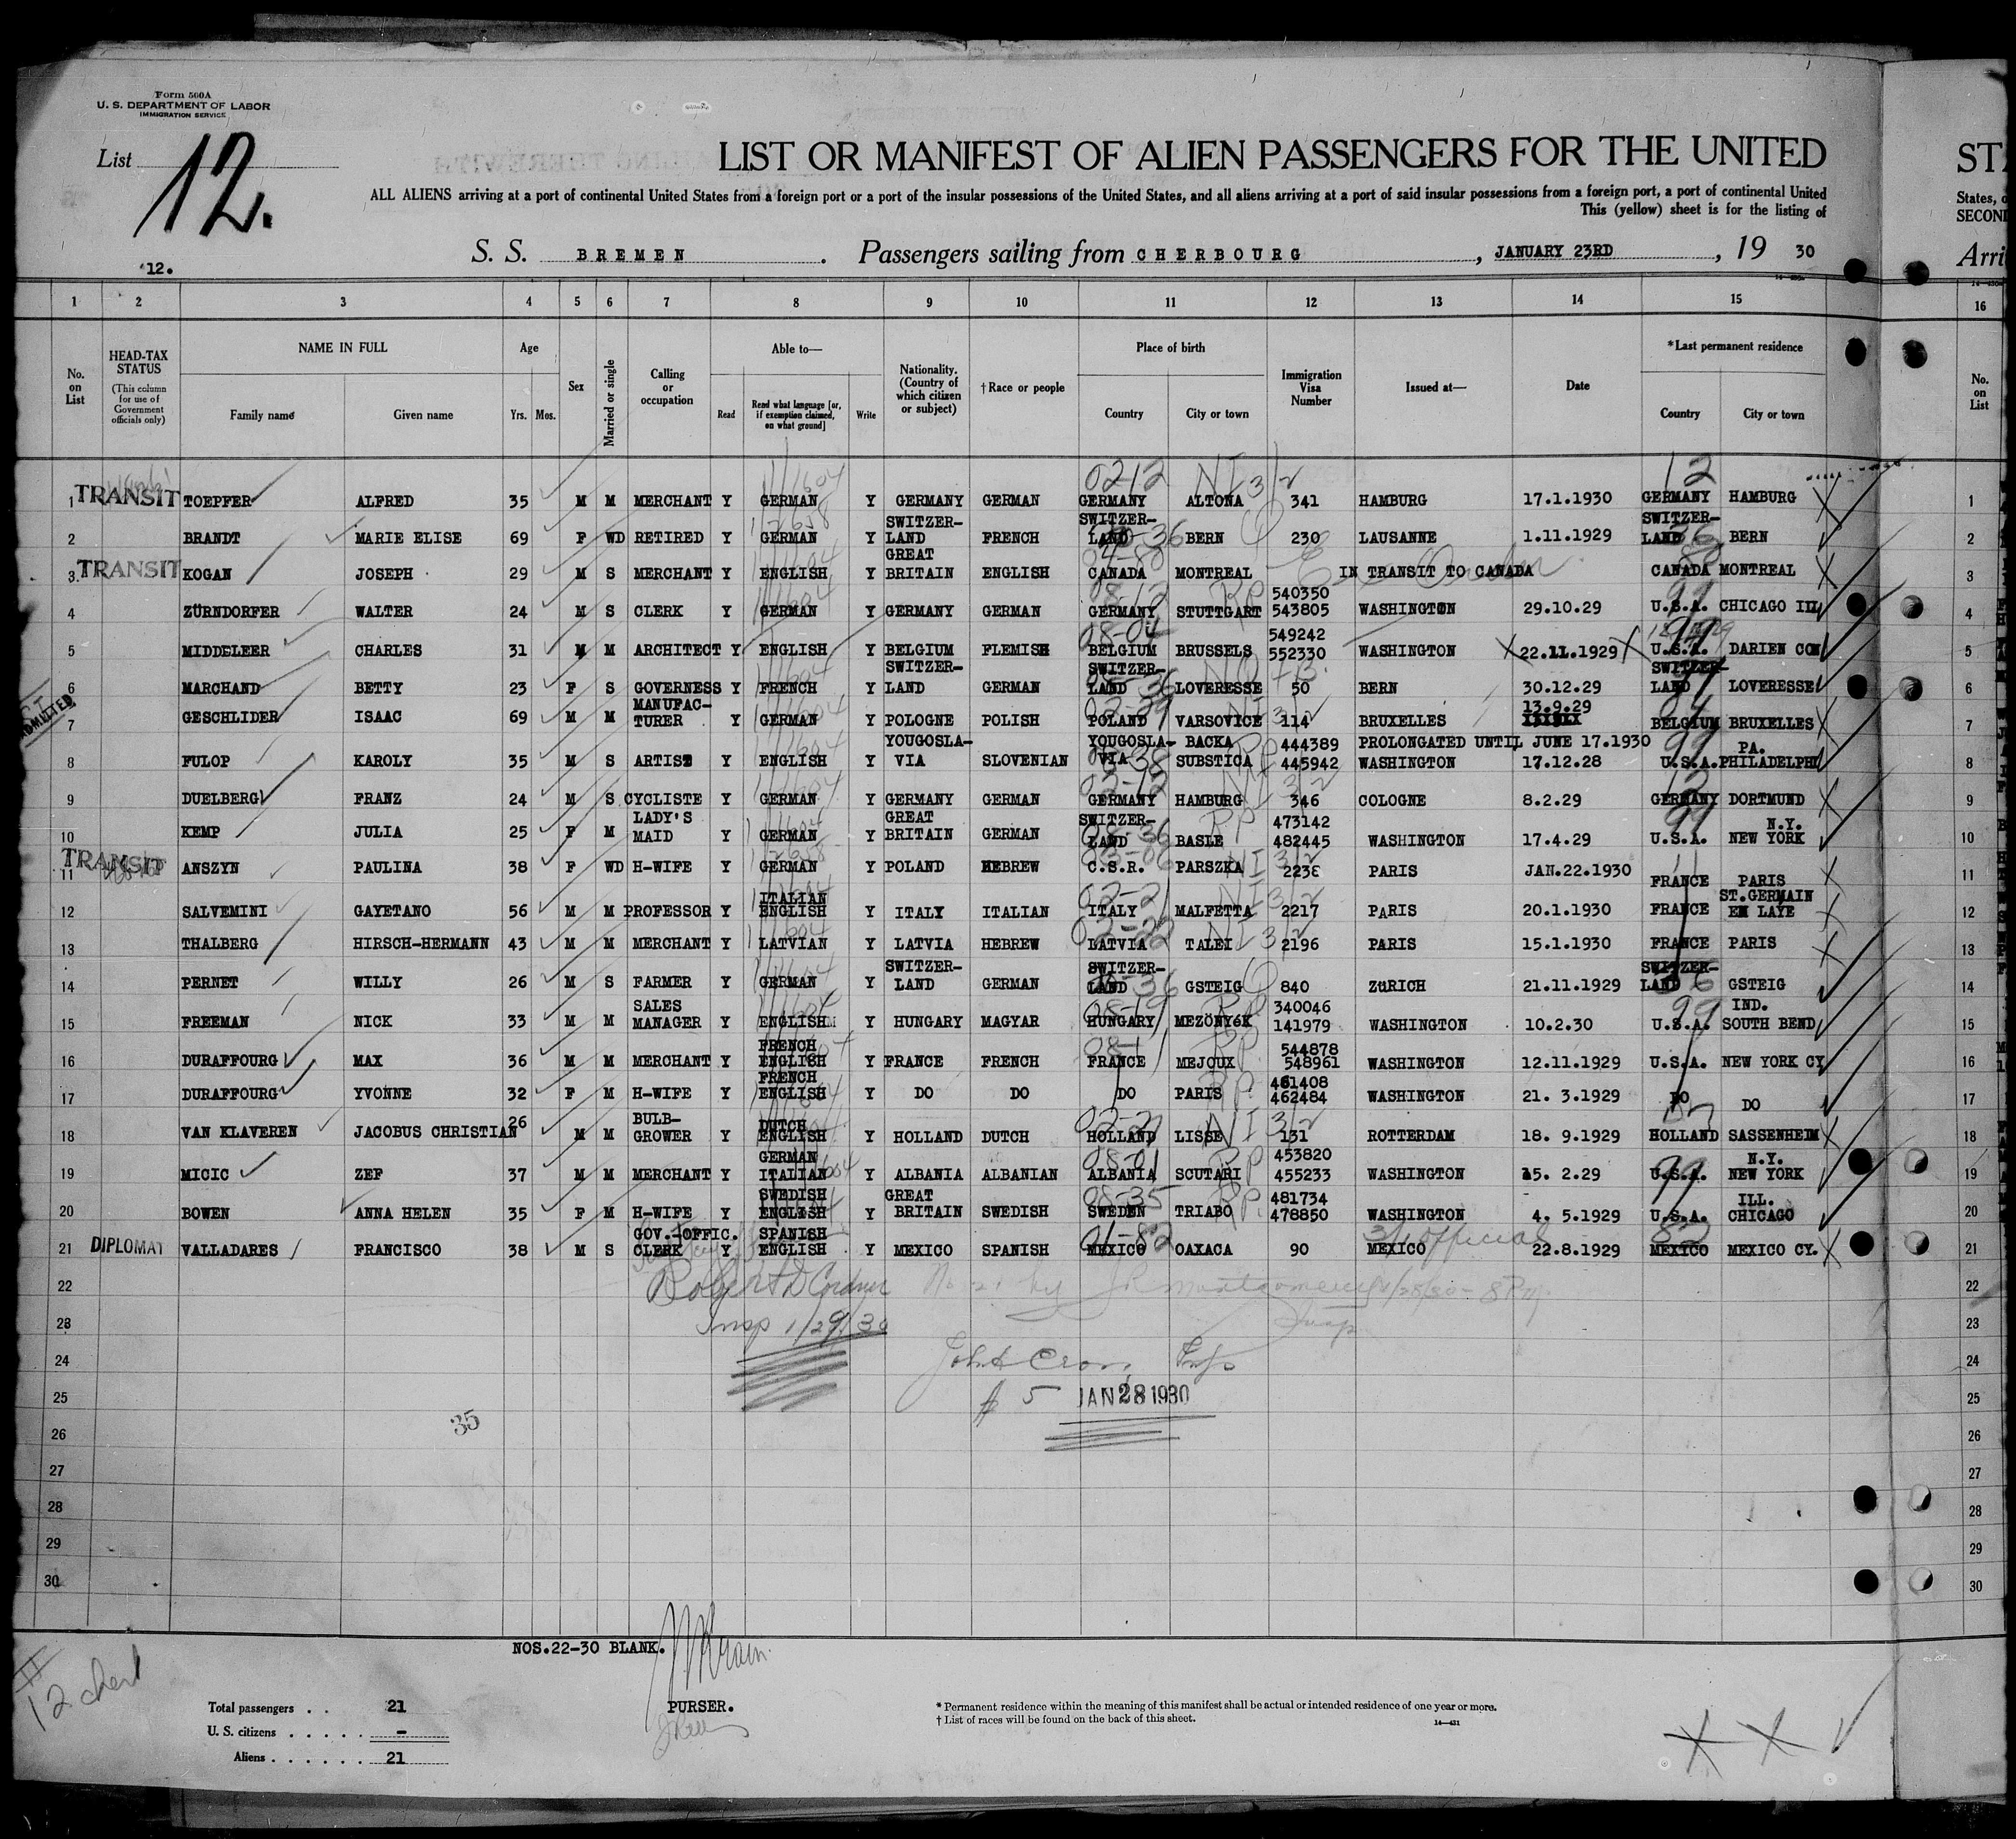 Form 500A
U. S. DEPARTMENT OF LABOR
IMMIGRATION SERVICE
List 12.
12.
LIST OR MANIFEST OF ALIEN PASSENGERS FOR THE UNITED
ALL ALIENS arriving at a port of continental United States from a foreign port or a port of the insular possessions of the United States, and all aliens arriving at a port of said insular possessions from a foreign port, a port of continental United
This (yellow) sheet is for the listing of
S. S. BREMEN. Passengers sailing from CHERBOURG, JANUARY 23RD, 19 30
1 2 3 4 5 6 7 8 9 10 11 12 13 14 15 16
No. on List
HEAD-TAX STATUS (This column for use of Government officials only)
NAME IN FULL Family name Given name
Age Yrs. Mos.
Sex
Married or single
Calling or occupation
Able to— Read Read what language [or, if exemption claimed, on what ground] Write
Nationality. (Country of which citizen or subject)
† Race or people
Place of birth Country City or town
Immigration Visa Number
Issued at—
Date
*Last permanent residence Country City or town
No. on List
1 TRANSIT TOEPFER ALFRED 35 M M MERCHANT Y GERMAN Y GERMANY GERMAN GERMANY ALTONA 341 HAMBURG 17.1.1930 GERMANY HAMBURG 1
2 BRANDT MARIE ELISE 69 F WD RETIRED Y GERMAN Y SWITZER-LAND FRENCH SWITZER-LAND BERN 230 LAUSANNE 1.11.1929 SWITZER-LAND BERN 2
3 TRANSIT KOGAN JOSEPH 29 M S MERCHANT Y ENGLISH Y GREAT BRITAIN ENGLISH CANADA MONTREAL IN TRANSIT TO CANADA CANADA MONTREAL 3
4 ZÜRNDORFER WALTER 24 M S CLERK Y GERMAN Y GERMANY GERMAN GERMANY STUTTGART 540350 543805 WASHINGTON 29.10.29 U.S.A. CHICAGO ILL 4
5 MIDDELEER CHARLES 31 M M ARCHITECT Y ENGLISH Y BELGIUM FLEMISH BELGIUM BRUSSELS 549242 552330 WASHINGTON 22.11.1929 U.S.A. DARIEN CON 5
6 MARCHAND BETTY 23 F S GOVERNESS Y FRENCH Y SWITZER-LAND GERMAN SWITZER-LAND LOVERESSE 50 BERN 30.12.29 SWITZER-LAND LOVERESSE 6
7 GESCHLIDER ISAAC 69 M M MANUFAC-TURER Y GERMAN Y POLOGNE POLISH POLAND VARSOVICE 114 BRUXELLES 13.9.29 BELGIUM BRUXELLES 7
8 FULOP KAROLY 35 M S ARTIST Y ENGLISH Y YOUGOSLA-VIA SLOVENIAN YOUGOSLA-VIA BACKA SUBSTICA 444389 445942 PROLONGATED UNTIL JUNE 17.1930 WASHINGTON 17.12.28 U.S.A. PA. PHILADELPHI 8
9 DUELBERG FRANZ 24 M S CYCLISTE Y GERMAN Y GERMANY GERMAN GERMANY HAMBURG 346 COLOGNE 8.2.29 GERMANY DORTMUND 9
10 KEMP JULIA 25 F M LADY'S MAID Y GERMAN Y GREAT BRITAIN GERMAN SWITZER-LAND BASLE 473142 482445 WASHINGTON 17.4.29 U.S.A. N.Y. NEW YORK 10
11 TRANSIT ANSZYN PAULINA 38 F WD H-WIFE Y GERMAN Y POLAND HEBREW C.S.R. PARSZKA 2236 PARIS JAN.22.1930 FRANCE PARIS 11
12 SALVEMINI GAYETANO 56 M M PROFESSOR Y ITALIAN ENGLISH Y ITALY ITALIAN ITALY MALFETTA 2217 PARIS 20.1.1930 FRANCE ST.GERMAIN EN LAYE 12
13 THALBERG HIRSCH-HERMANN 43 M M MERCHANT Y LATVIAN Y LATVIA HEBREW LATVIA TALEI 2196 PARIS 15.1.1930 FRANCE PARIS 13
14 PERNET WILLY 26 M S FARMER Y GERMAN Y SWITZER-LAND GERMAN SWITZER-LAND GSTEIG 840 ZüRICH 21.11.1929 SWITZER-LAND GSTEIG 14
15 FREEMAN NICK 33 M M SALES MANAGER Y ENGLISH Y HUNGARY MAGYAR HUNGARY 340046 141979 WASHINGTON 10.2.30 U.S.A. IND. SOUTH BEND 15
16 DURAFFOURG MAX 36 M M MERCHANT Y FRENCH ENGLISH Y FRANCE FRENCH FRANCE MEJOUX 544878 548961 WASHINGTON 12.11.1929 U.S.A. NEW YORK CY 16
17 DURAFFOURG YVONNE 32 F M H-WIFE Y FRENCH ENGLISH Y DO DO DO PARIS 461408 462484 WASHINGTON 21. 3.1929 DO DO 17
18 VAN KLAVEREN JACOBUS CHRISTIAN 26 M M BULB-GROWER Y DUTCH ENGLISH Y HOLLAND DUTCH HOLLAND LISSE 131 ROTTERDAM 18. 9.1929 HOLLAND SASSENHEIM 18
19 MICIC ZEF 37 M M MERCHANT Y GERMAN ITALIAN Y ALBANIA ALBANIAN ALBANIA SCUTARI 453820 455233 WASHINGTON 15. 2.29 U.S.A. N.Y. NEW YORK 19
20 BOWEN ANNA HELEN 35 F M H-WIFE Y SWEDISH ENGLISH Y GREAT BRITAIN SWEDISH SWEDEN TRIABO 481734 478850 WASHINGTON 4. 5.1929 U.S.A. ILL. CHICAGO 20
21 DIPLOMAT VALLADARES FRANCISCO 38 M S GOV.-OFFIC. CLERK Y SPANISH ENGLISH Y MEXICO SPANISH MEXICO OAXACA 90 MEXICO 22.8.1929 MEXICO MEXICO CY. 21
22 22
23 Insp 1/29/30 23
24 John 24
25 5 JAN 28 1930 25
26 35 26
27 27
28 28
29 29
30 30
NOS.22-30 BLANK.
PURSER.
12 cherb
Total passengers . . 21
U. S. citizens . . . . . –
Aliens . . . . . . 21
* Permanent residence within the meaning of this manifest shall be actual or intended residence of one year or more.
† List of races will be found on the back of this sheet.
14—431
STA
States, o
SECOND
Arri